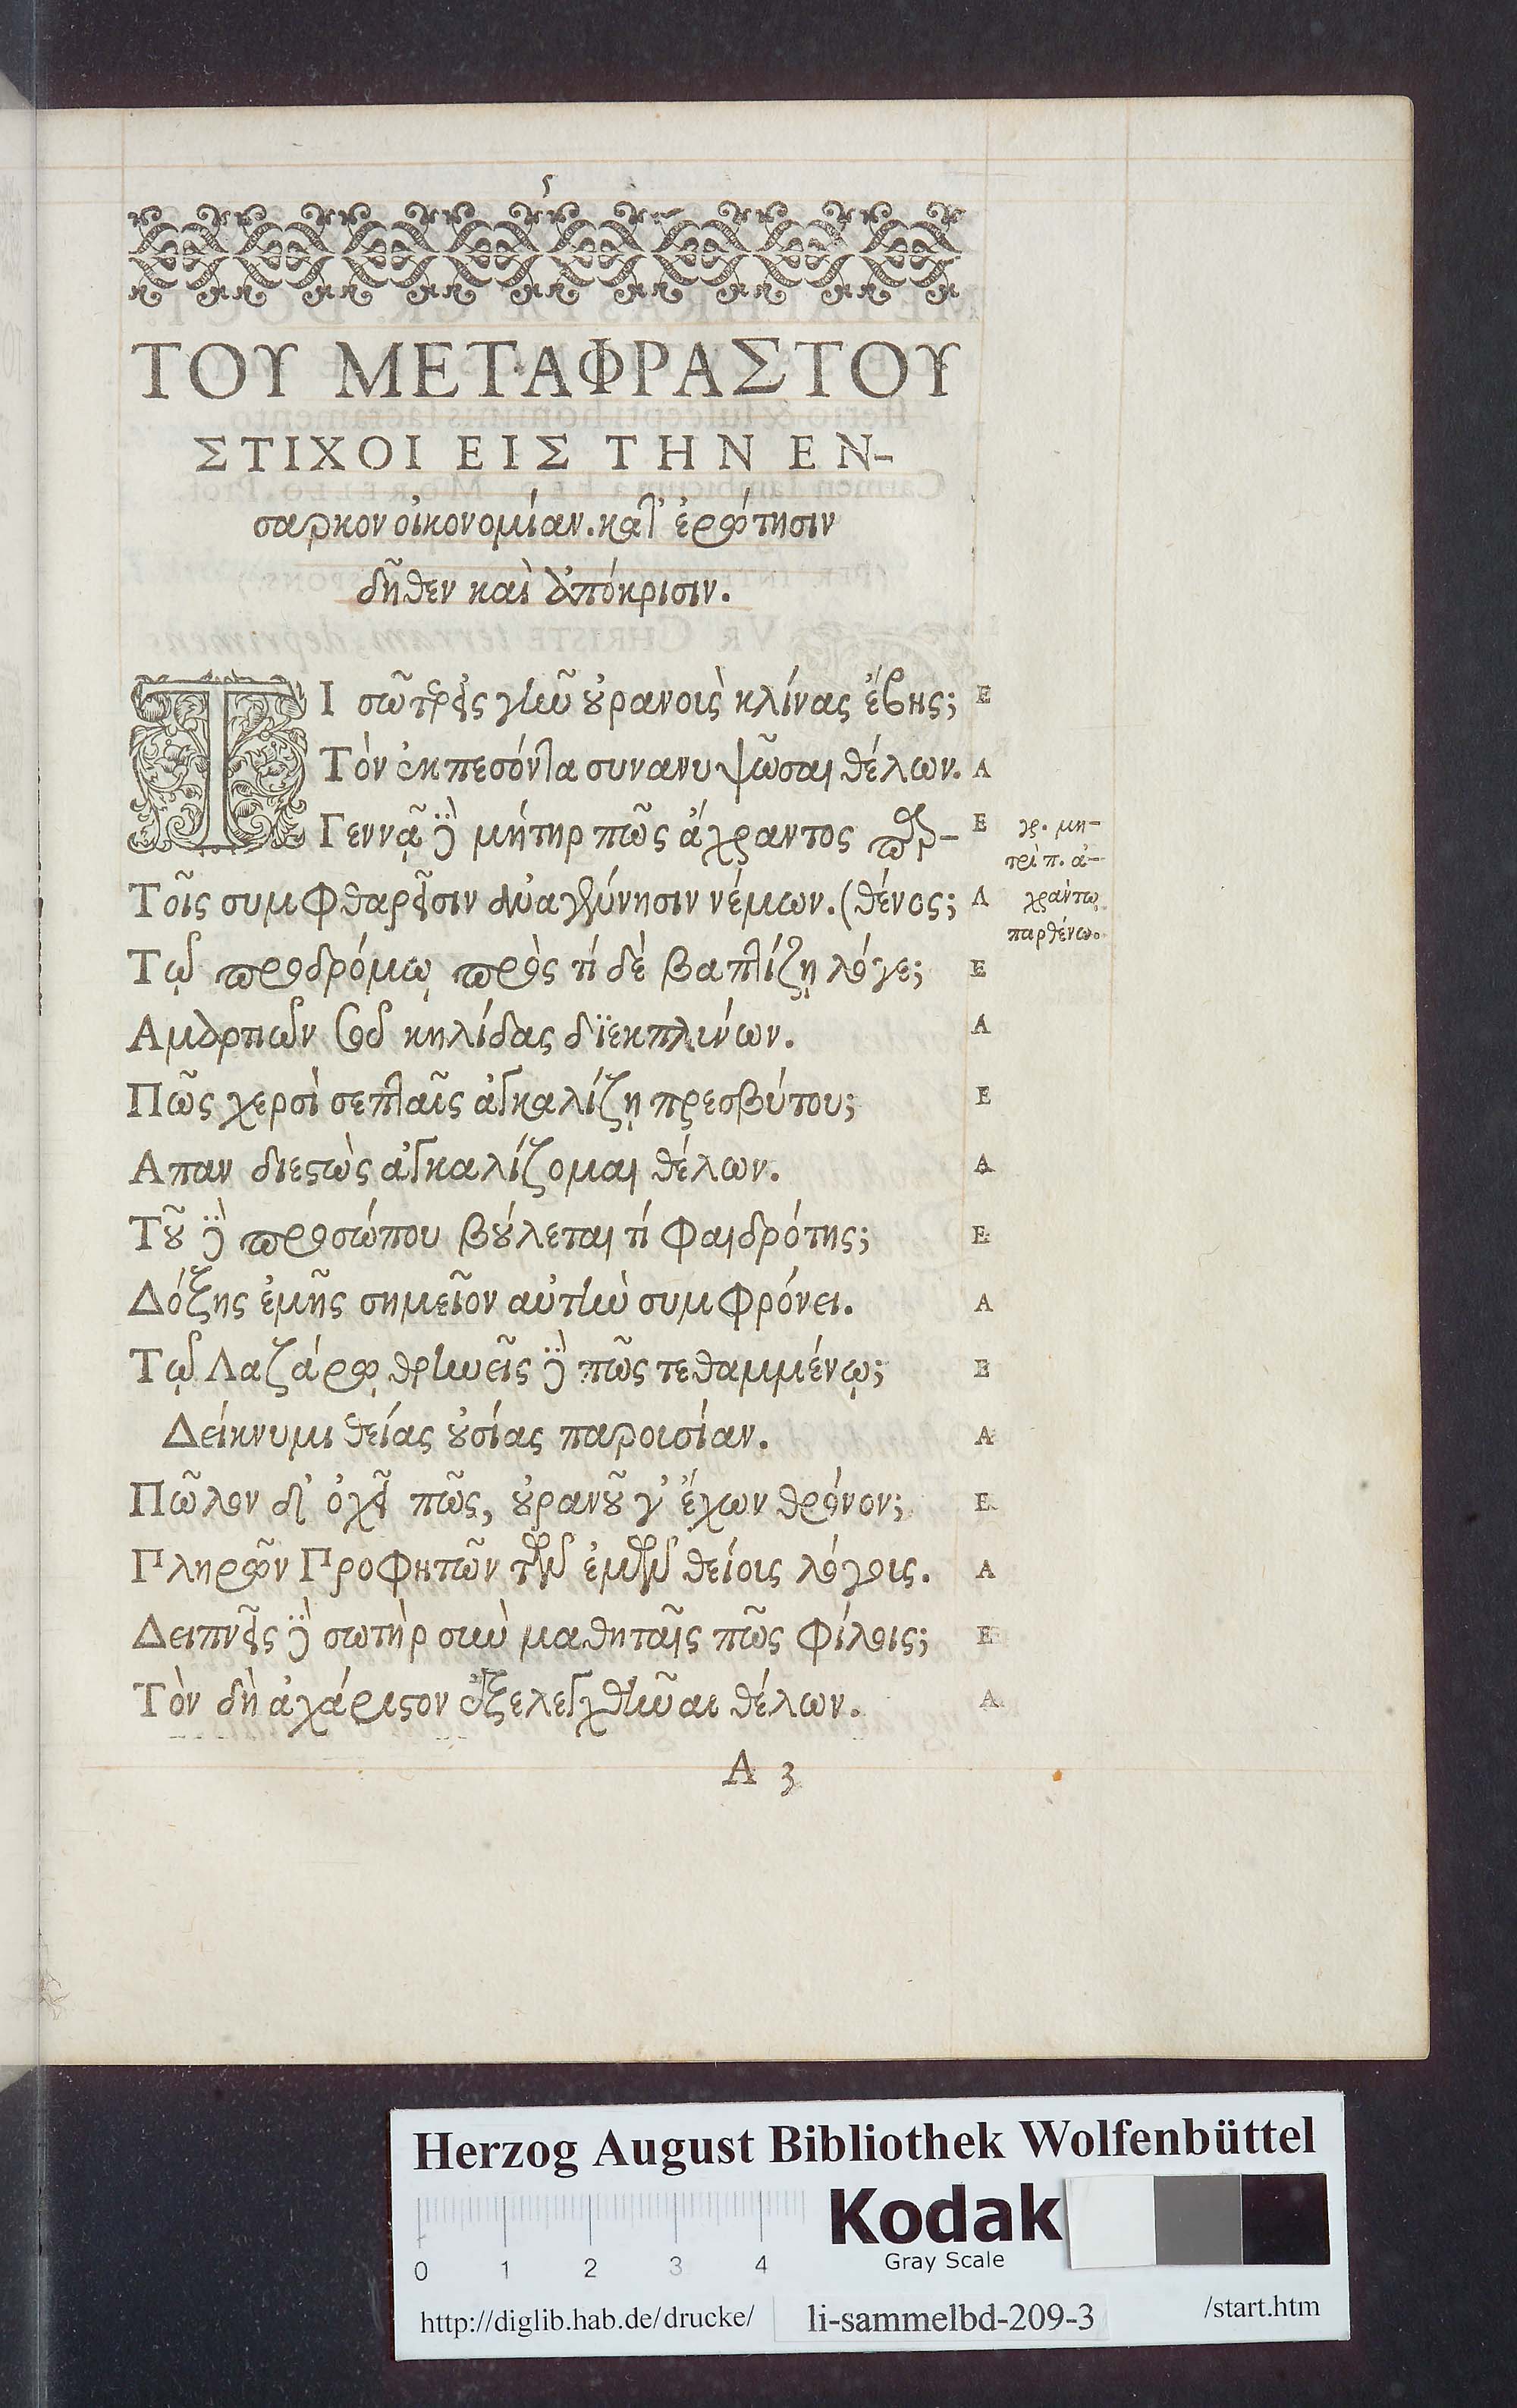 5
ΤΟΥ ΜΕΤΑΦΡΑΣΤΟΥ
ΣΤΙΧΟΙ ΕΙΣ ΤΗΝ ΕΝ-
σαρκον οἰκονομίαν. κατ' ἐρώτησιν
δῆθεν καὶ ἀπόκρισιν.
ΤΙ σῶτερ εἰς γῆν οὐρανοὺς κλίνας ἔβης; Ε
Τὸν ἐκπεσόντα συνανυψῶσαι θέλων. Α
Γεννᾷ δὲ μήτηρ πῶς ἄχραντος παρ- Ε
γρ. μη-
τρὶ π. ἀ-
Τοῖς συμφθαρεῖσιν εὐαγῆ γένησιν νέμων. (θένος; Α
χράντω
παρθένω.
Τῷ προδρόμῳ πρὸς τί δὲ βαπτίζῃ λόγε; Ε
Αμαρτιῶν σου κηλίδας διεκπλύνων. Α
Πῶς χερσὶ σεπταῖς ἀγκαλίζῃ πρεσβύτου; Ε
Απαν διεστὼς ἀγκαλίζομαι θέλων. Α
Τοῦ δὲ προσώπου βούλεται τί φαιδρότης; Ε
Δόξης ἐμῆς σημεῖον αὐτὴν συμφρόνει. Α
Τῷ Λαζάρῳ θρηνεῖς δὲ πῶς τεθαμμένῳ; Ε
Δείκνυμι θείας οὐσίας παρουσίαν. Α
Πῶλον δι' ὀχεῖ πῶς, οὐρανοῦ γ' ἔχων θρόνον; Ε
Πληρῶν Προφητῶν τῶν ἐμῶν θείοις λόγοις. Α
Δειπνεῖς δὲ σωτὴρ σὺν μαθηταῖς πῶς φίλοις; Ε
Τὸν δὴ ἀχάριστον ἐξελεγχθῆναι θέλων. Α
A 3
Herzog August Bibliothek Wolfenbüttel
Kodak
Gray Scale
0 1 2 3 4
http://diglib.hab.de/drucke/ li-sammelbd-209-3 /start.htm